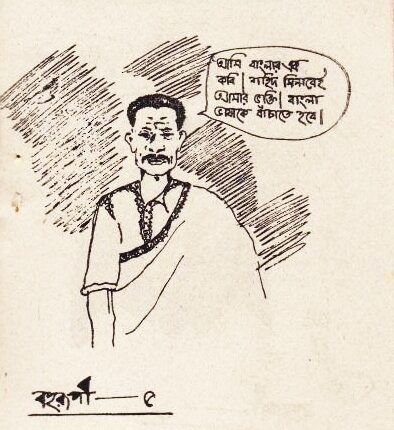 আমি বাংলার এক
কবি। শহিদ মিনারেই
আমার ভক্তি। বাংলা
ভাষাকে বাঁচাতে হবে।
বহুরূপী — ৫